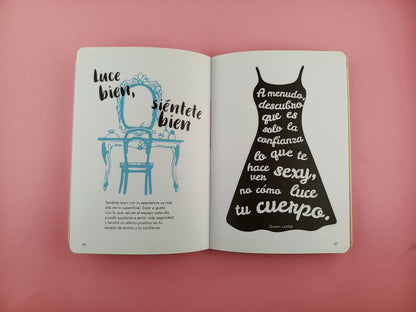 Luce
bien,
siéntete
bien
Sentirte bien con tu apariencia va más
allá de lo superficial. Estar a gusto
con lo que ves en el espejo cada día
puede ayudarte a sentir más seguridad
y tendrá un efecto positivo en tu
estado de ánimo y tu confianza.
86
A menudo,
descubro
que es
solo la
confianza
lo que te
hace
ver sexy,
no cómo luce
tu cuerpo.
Queen Latifah
87